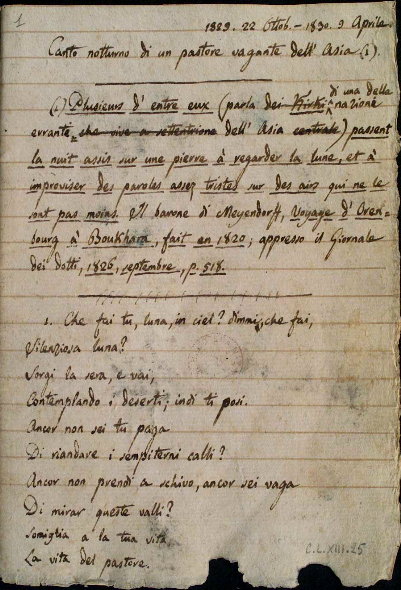 1
1829. 22 Ottob. - 1830. 9 Aprile.
Canto notturno di un pastore vagante dell' Asia (1).
(1) Plusieurs d' entre eux (parla dei Kirki di una delle nazione
errante, che vive a settentrione dell' Asia centrale) passent
la nuit assis sur une pierre à regarder la lune, et à
improviser des paroles assez tristes sur des airs qui ne le
sont pas moins. Il barone di Meyendorff, Voyage d' Oren=
bourg à Boukhara, fait en 1820; appresso il Giornale
dei dotti, 1826, septembre, p. 518.
1. Che fai tu, luna, in ciel? dimmi, che fai,
Silenziosa luna?
Sorgi la sera, e vai,
Contemplando i deserti; indi ti posi.
Ancor non sei tu paga
Di riandare i sempiterni calli?
Ancor non prendi a schivo, ancor sei vaga
Di mirar queste valli?
Somiglia a la tua vita
La vita del pastore.
C.L.XIII.25